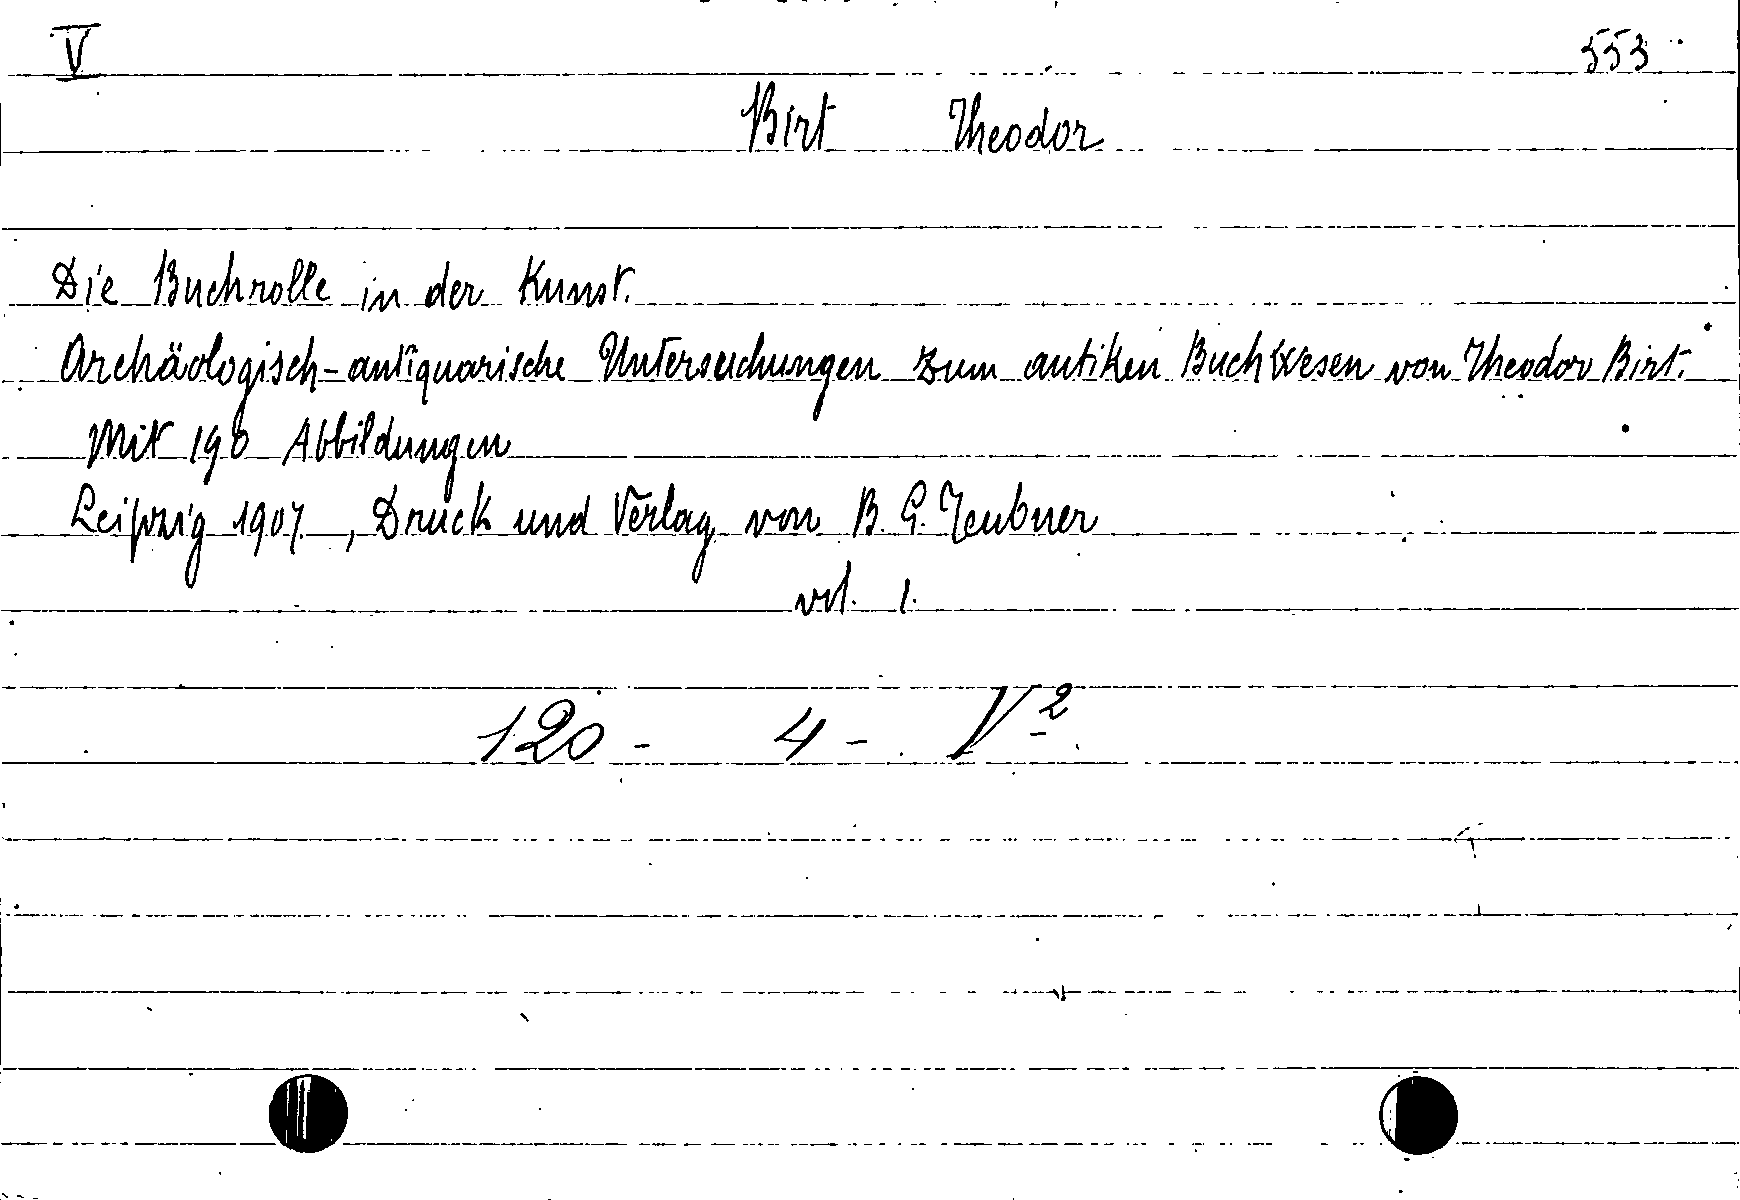 V 553
Birt Theodor
Die Buchrolle in der Kunst.
Archäologisch-antiquarische Untersuchungen zum antiken Buchwesen von Theodor Birt.
Mit 190 Abbildungen
Leipzig 1907., Druck und Verlag von B. G. Teubner
vol. 1.
120 - 4 - V²